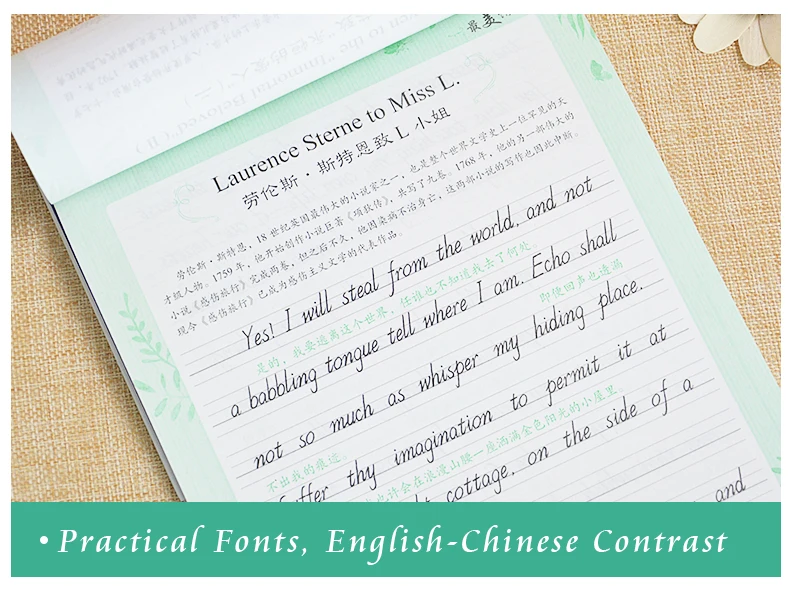 最美
Laurence Sterne to Miss L.
劳伦斯·斯特恩致 L 小姐
劳伦斯·斯特恩,18 世纪英国最伟大的小说家之一,也是整个世界文学史上一位罕见的天
才级人物。1759 年,他开始创作小说巨著《项狄传》,共写了九卷。1768 年,他的另一部伟大的
小说《感伤旅行》完成两卷,但之后不久,他因染病不治身亡,这两部小说的写作也因此中断。
现今《感伤旅行》已成为感伤主义文学的代表作品。
Yes! I will steal from the world, and not
是的,我要逃离这个世界,任谁也不知道我去了何处。
a babbling tongue tell where I am. Echo shall
即便回声也透漏
not so much as whisper my hiding place.
不出我的痕迹。
suffer thy imagination to permit it at
也许会在浪漫山腰一座洒满金色阳光的小屋里。
cottage, on the side of a
and
• Practical Fonts, English-Chinese Contrast